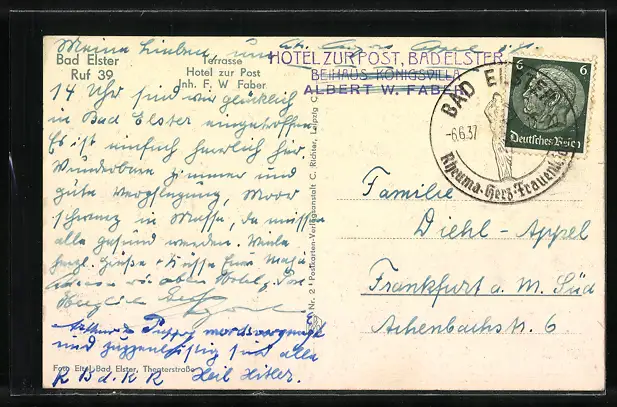 Meine Lieben, um
Bad Elster
Ruf 39
Terrasse
Hotel zur Post
Inh. F. W Faber
HOTEL ZUR POST, BAD ELSTER
BEIHAUS KÖNIGSVILLA
ALBERT W. FABER
14 Uhr sind wir glücklich
in Bad Elster eingetroffen.
Es ist einfach herrlich hier.
Wunderbare Zimmer und
gute Verpflegung, Moor
schwarz in Masse, da müssen
alle gesund werden. Viele
herzl. Grüsse + Küsse Eure
wir oben Hotel
mordsvergnügt
und sind alle
Heil Hitler.
Foto Eitel, Bad Elster, Theaterstraße
Nr. 2 * Postkarten-Verlagsanstalt C. Richter, Leipzig C
BAD ELSTER
-6.6.37
Rheuma. Herz. Frauen
6 6
Deutsches Reich
Familie
Diehl-Appel
Frankfurt a. M. Süd
Achenbachstr. 6